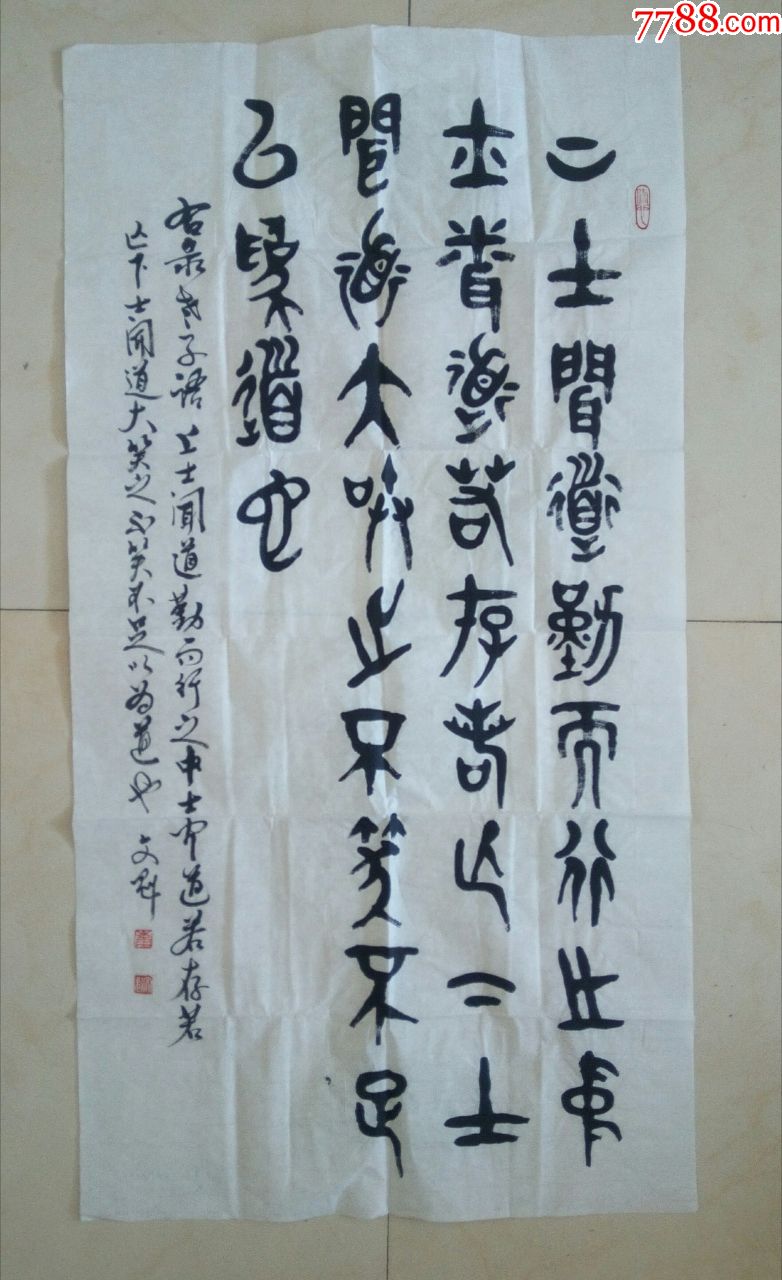 上士聞道勤而行之中
士昏道若存若亡下士
聞道大笑之不笑不足
以為道也
右录老子语上士闻道勤而行之中士闻道若存若
亡下士闻道大笑之不笑不足以为道也 文魁
7788.com